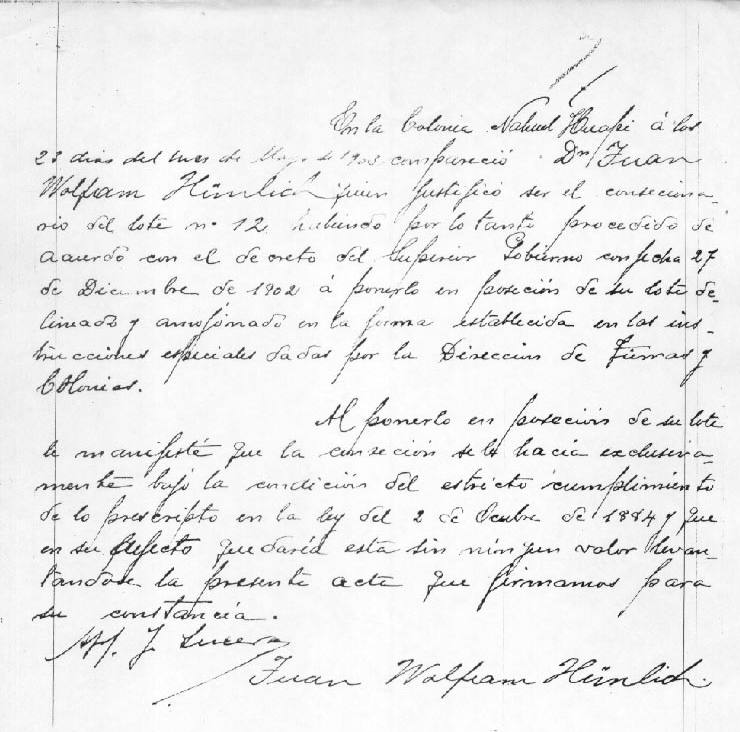 En la Colonia Nahuel Huapi á los
23 dias del mes de Mayo de 1903 compareció Dn Juan
Wolfram Hümlich quien justificó ser el conseciona-
rio del lote no 12 habiendo por lo tanto procedido de
acuerdo con el decreto del Superior Gobierno con fecha 27
de Diciembre de 1902 á ponerlo en poseción de su lote de-
lineado y amojonado en la forma establecida en las ins-
trucciones especiales dadas por la Direccion de Tierras y
Colonias.
Al ponerlo en poseción de su lote
le manifesté que la conseción se le hacia exclusiva-
mente bajo la condición del estricto cumplimiento
de lo prescripto en la ley del 2 de Octubre de 1884 y que
en su defecto quedaría esta sin ningun valor levan-
tandose la presente acta que firmamos para
su constancia.
J. Lucero
Juan Wolfram Hümlich.